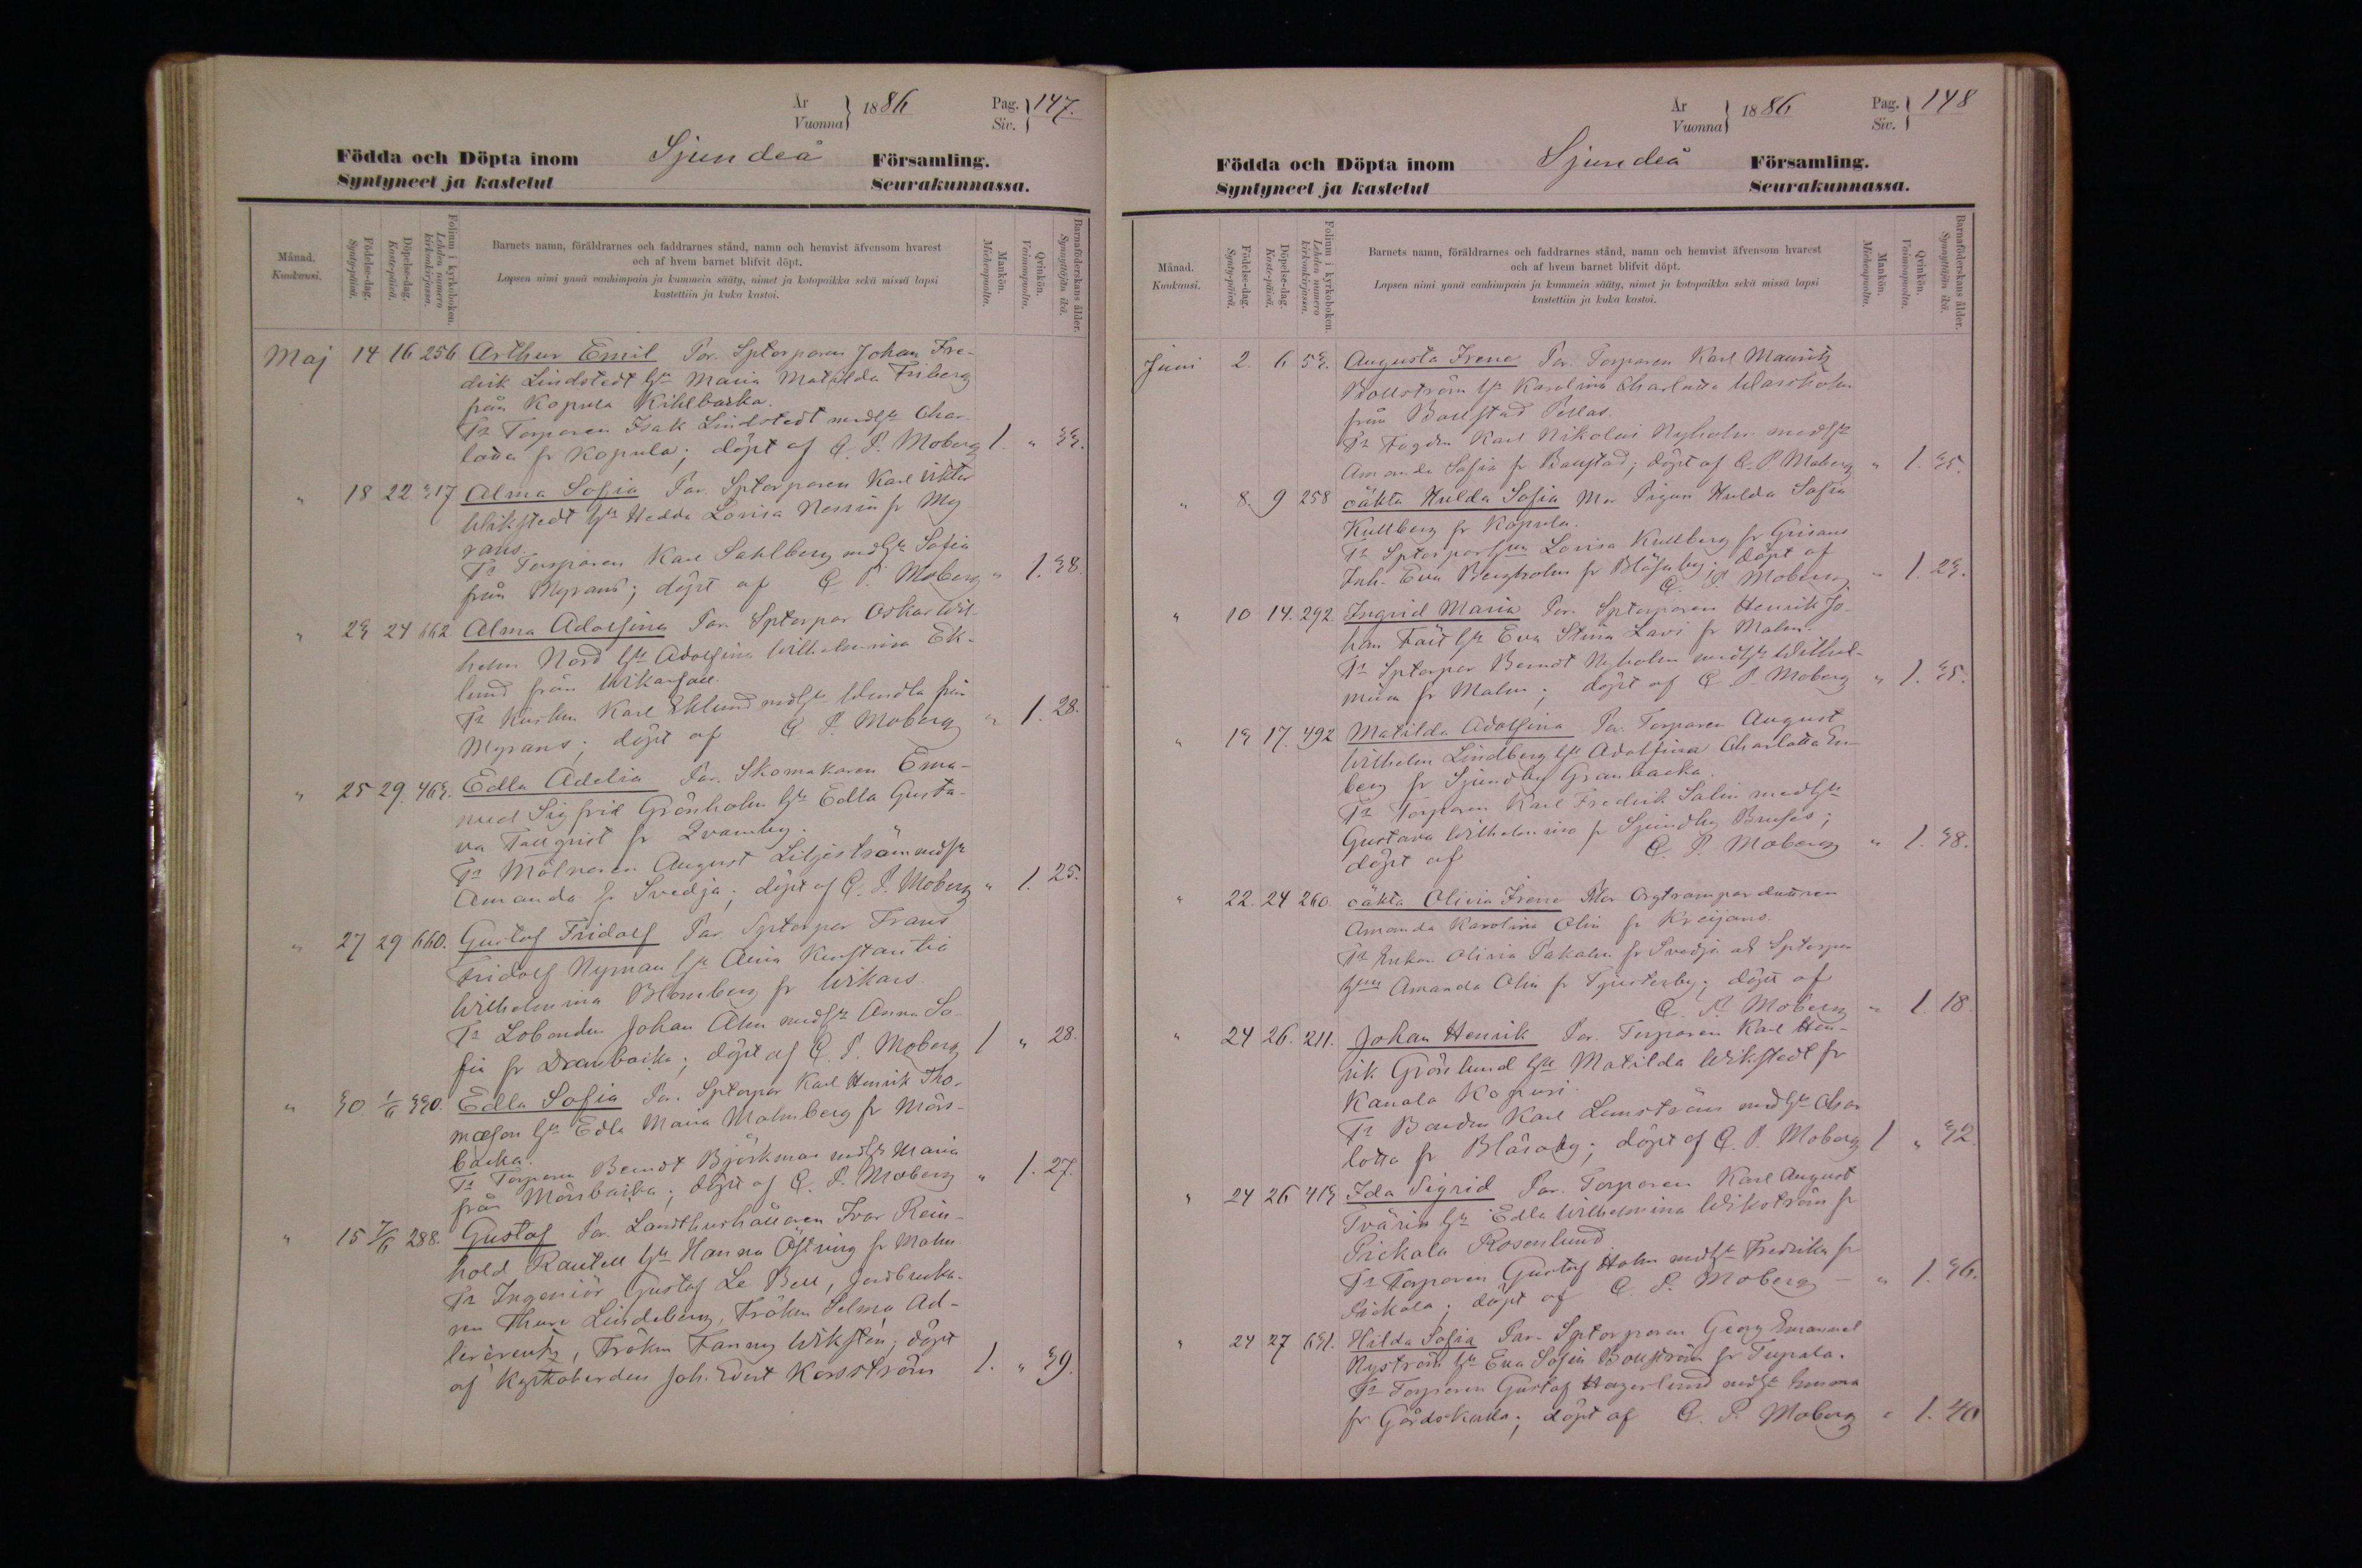 År
Vuonna } 1886
Pag.
Siv. } 147.
Födda och Döpta inom Sjundeå Församling.
Syntyneet ja kastetut Seurakunnassa.
Månad.
Kuukausi.
Födelse-dag.
Synty-päivä.
Döpelse-dag.
Kaste-päivä.
Folium i kyrkoboken.
Lehden numero kirkonkirjassa.
Barnets namn, föräldrarnes och faddrarnes stånd, namn och hemvist äfvensom hvarest
och af hvem barnet blifvit döpt.
Lapsen nimi ynnä vanhimpain ja kummein sääty, nimet ja kotopaikka sekä missä lapsi
kastettiin ja kuka kastoi.
Mankön.
Miehenpuolta.
Qvinkön.
Vaimonpuolta.
Barnaföderskans ålder.
Synnyttäjän ikä.
Maj 14 16 256 Arthur Emil Par. Sptorparen Johan Fre-
drik Lindstedt hu Maria Matilda Friberg
från Kopula Kihlbacka.
Fr Torparen Isak Lindstedt medhu Char-
lotta fr Kopula; döpt af Q. P. Moberg 1. " 33.
" 18 22 317 Alma Sofia Par. Sptorparen Karl Viktor
Wikstedt hu Hedda Lovisa fr My
rans.
Fr Torparen Karl Sahlberg medhu Sofia
från Myrans; döpt af Q. P. Moberg " 1. 38.
" 23 24 662 Alma Adolfina Par. Sptorpar Oskar Wil-
helm Nord hu Adolfina Wilhelmina Ek-
lund från
Fr Karl Eklund medhu Wendla från
Myrans; döpt af Q. P. Moberg " 1. 28.
" 25 29. 463. Edla Adelia Par. Skomakaren Ema-
nuel Sigfrid Grönholm hu Edla Gusta-
va Tallqvist fr Qvarnby.
Fr Mölnaren August Liljeström medhu
Amanda fr Svedja; döpt af Q. P. Moberg " 1. 25.
" 27 29 660. Gustaf Fridolf Par. Sptorpar Frans
Fridolf Nyman hu Aina Konstantia
Wilhelmina Blomberg fr Wikars
Fr Lobonden Johan Alm medhu Anna So-
fia fr; döpt af Q. P. Moberg 1 " 28.
" 30. 1/6 330. Edla Sofia Par. Sptorpar Karl Henrik Tho-
masson hu Edla Maria Malmberg fr Mörs-
backa.
Fr Torparen Berndt Björkman medhu Maria
från Mörsbacka; döpt af Q. P. Moberg " 1. 27.
" 15 7/6 288. Gustaf Par. Landthushållaren Ivar Rein-
hold Rautell hu Hanna Östring fr Malm
Fr Ingeniör Gustaf Le Bell, Jordbruka-
ren Thure Lindeberg, Fröken Selma Ad-
lercreutz, Fröken Fanny Wikstén; döpt
af Kyrkoherden Joh. Evert Karsström 1. " 39.
År
Vuonna } 1886
Pag.
Siv. } 148
Födda och Döpta inom Sjundeå Församling.
Syntyneet ja kastetut Seurakunnassa.
Månad.
Kuukausi.
Födelse-dag.
Synty-päivä.
Döpelse-dag.
Kaste-päivä.
Folium i kyrkoboken.
Lehden numero kirkonkirjassa.
Barnets namn, föräldrarnes och faddrarnes stånd, namn och hemvist äfvensom hvarest
och af hvem barnet blifvit döpt.
Lapsen nimi ynnä vanhimpain ja kummein sääty, nimet ja kotopaikka sekä missä lapsi
kastettiin ja kuka kastoi.
Mankön.
Miehenpuolta.
Qvinkön.
Vaimonpuolta.
Barnaföderskans ålder.
Synnyttäjän ikä.
Juni 2. 6 53. Augusta Irene Par. Torparen Karl Mauritz
Bollström hu Karolina Charlotta
från Bollstad Pellas.
Fr Fogden Karl Nikolai Nyholm medhu
Amanda Sofia fr Bollstad; döpt af Q. P. Moberg " 1. 35.
" 8. 9 258 oäkta Hulda Sofia Mor Pigan Hulda Sofia
Kullberg fr Kopula.
Fr Sptorparhun Lovisa Kullberg fr Grisans
Inh. Eva Bergholm fr Blåsaby; döpt af
Q. P. Moberg " 1. 23.
" 10 14. 292. Ingrid Maria Par. Sptorparen Henrik Jo-
han Fält hu Eva Stina Lavi fr Malm.
Fr Sptorpar Berndt Nyholm medhu Wilhel-
mina fr Malm; döpt af Q. P. Moberg " 1. 35.
" 13 17. 492 Matilda Adolfina Par. Torparen August
Wilhelm Lindberg hu Adolfina Charlotta En-
berg fr Sjundby Granbacka.
Fr Torparen Karl Fredrik Salin medhu
Gustava Wilhelmina fr Sjundby Brusas;
döpt af Q. P. Moberg " 1. 38.
" 22. 24 260. oäkta Olivia Irene Mor
Amanda Karolina Olin fr Kreijans.
Fr Enkan Olivia Pakalen fr Svedja och Sptorpar
hun Amanda Olin fr Tjusterby; döpt af
Q. P. Moberg " 1. 18.
" 24 26. 211. Johan Henrik Par. Torparen Karl Hen-
rik Grönlund hu Matilda Wikstedt fr
Kanala Kopusi.
Fr Bonden Karl Lunström medhu Char
lotta fr Blåsaby; döpt af Q. P. Moberg 1 " 32.
" 24 26 413 Ida Sigrid Par. Torparen Karl August
Tvärin hu Edla Wilhelmina Wikström fr
Pickala Rosenlund
Fr Torparen Gustaf Holm medhu Fredrika fr
Pickala; döpt af Q. P. Moberg – " 1. 36.
" 24 27 631. Hilda Sofia Par. Sptorparen Georg Emanuel
Nyström hu Eva Sofia Bollström fr Tupala.
Fr Torparen Gustaf Hagerlund medhu Emma
fr Gårdskulla; döpt af Q. P. Moberg " 1. 40